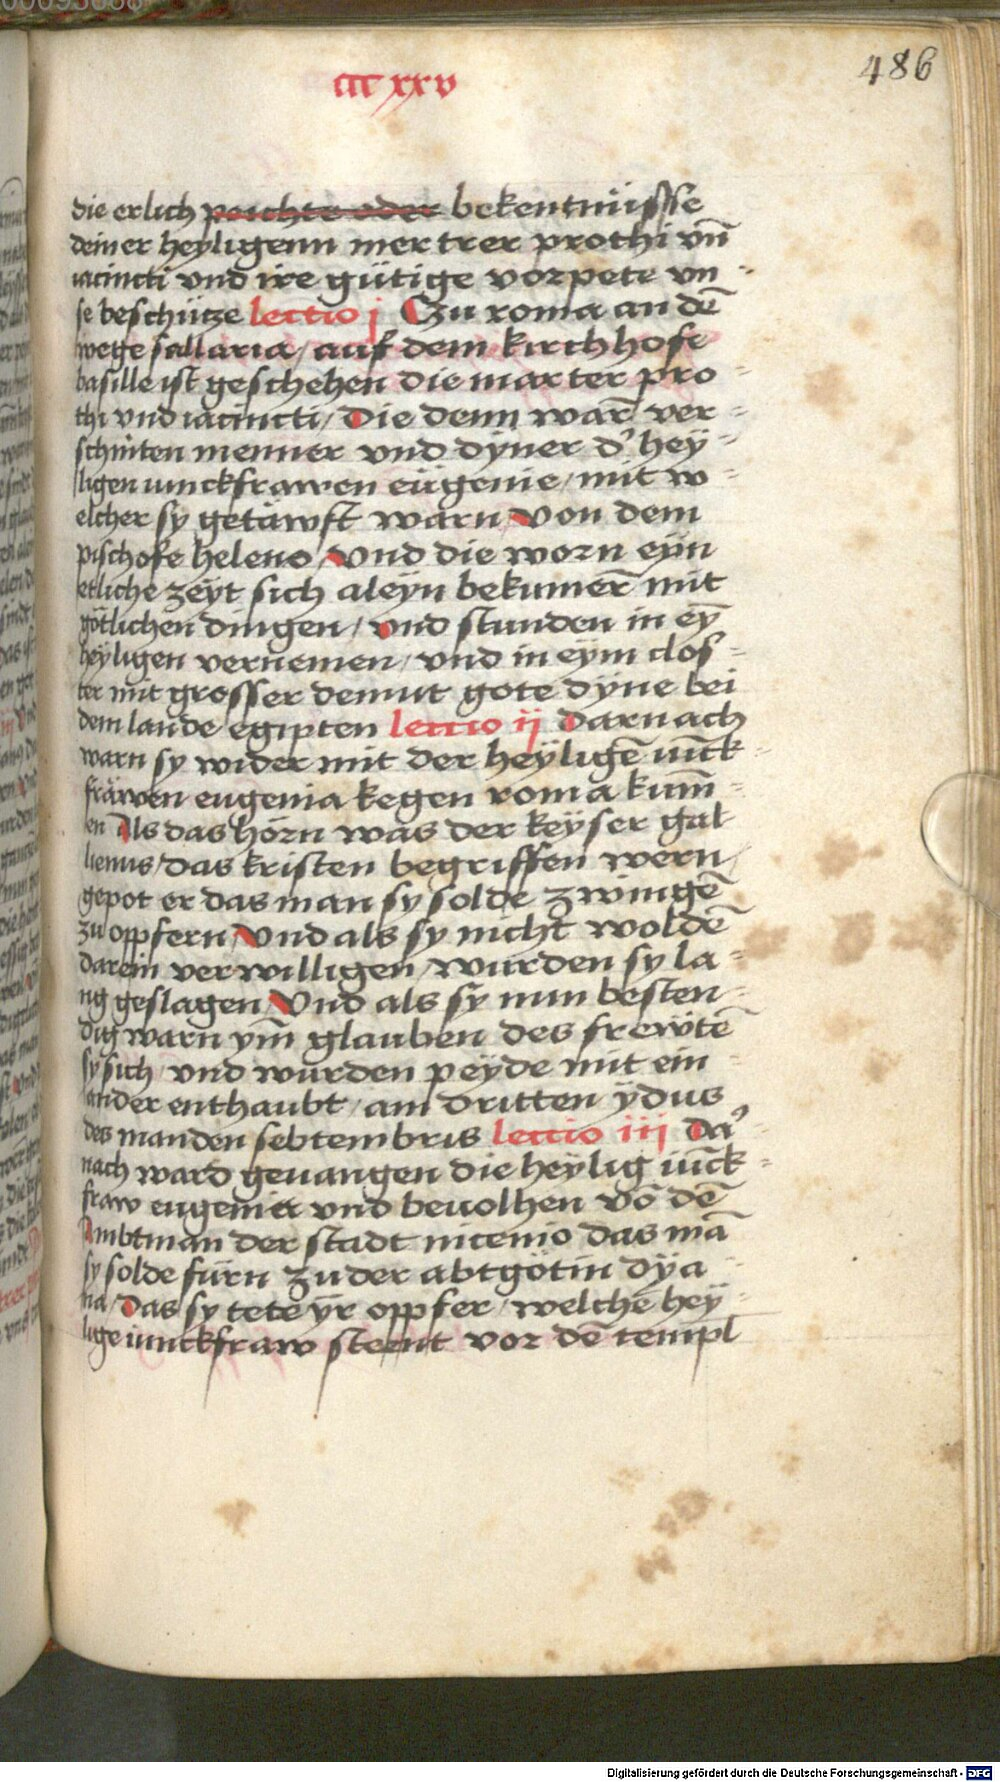 ccc xxv
486
die erlich peichte oder bekentnüsse
deiner heyligenn mertrer prothi vn̄
iacincti vnd ire gütige vorpete vn-
se beschütze lectio j Czu roma an dē
wege sallaria/ auf dem kirchhofe
basille ist geschehen die marter pro-
thi vnd iacincti/ Die denn warn̄ ver-
schniten menner vnd dyner d' hey-
ligen iunckfrawen eügenie/ mit w-
elcher sy getäwft warn Von dem
pischofe heleno/ Vnd die worn eyn
etliche zeyt sich aleyn bekumer̄ mit
götlichen dingen/ vnd stunden in eȳ
heyligen vernemen/ vnd in eym clos-
ter mit grosser demut gote dyne bei
dem lande egipten lectio ij Darnach
warn sy wider mit der heyligē iūck-
fräwen eugenia kegen roma kum̄-
en Als das hörn was der keyser gal
lienus/ das kristen begriffen wern/
gepot er das man sy solde zwingē
zu oppfern/ Vnd als sy nicht woldē
darein verwilligen/ wurden sy la-
ng geslagen/ Vnd als sy nun besten-
dig warn ym̄ glauben des frewtē
sy sich/ vnd wurden peyde mit ein-
ander enthaubt/ am dritten ydus
des manden sebtembris lectio iij Da'-
nach ward geuangen die heylig iūck-
fraw eugenia vnd beuolhen vō dē
Ambtman der stadt nicenio das mā
sy solde fürn zu der abtgötin dya-
na/ Das sy tete yr oppfer/ welche hey-
lige iunckfraw steent vor dē templ
Digitalisierung gefördert durch die Deutsche Forschungsgemeinschaft - DFG